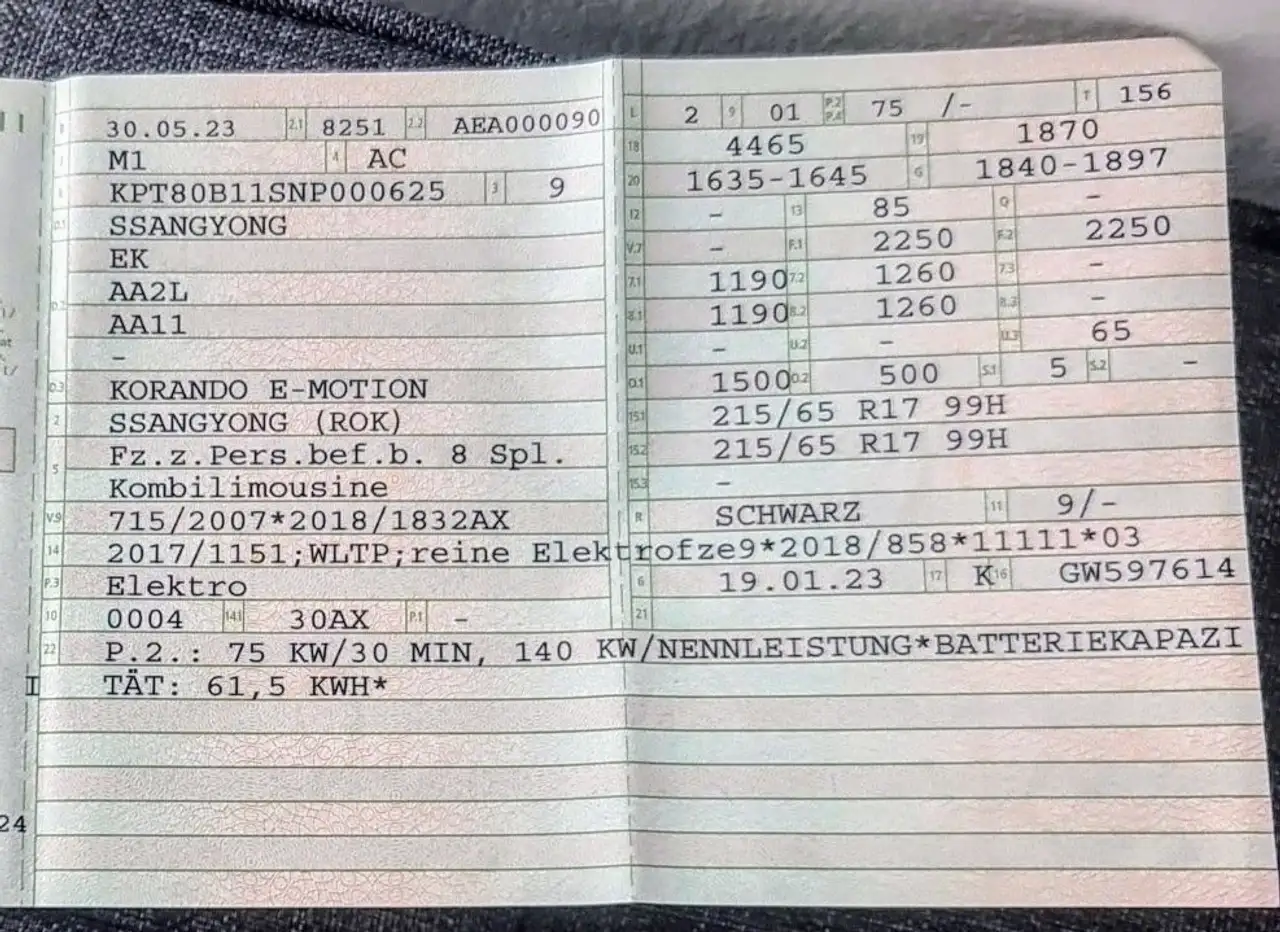 30.05.23 2.1 8251 2.2 AEA000090
M1 4 AC
KPT80B11SNP000625 3 9
SSANGYONG
EK
D.2 AA2L
AA11
–
D.3 KORANDO E-MOTION
2 SSANGYONG (ROK)
5 Fz.z.Pers.bef.b. 8 Spl.
Kombilimousine
V.9 715/2007*2018/1832AX
14 2017/1151;WLTP;reine Elektrofz
P.3 Elektro
10 0004 14.1 30AX P.1 –
L 2 9 01 P.2 P.4 75 /- T 156
18 4465 19 1870
20 1635-1645 G 1840-1897
12 – 13 85 Q –
V.7 – F.1 2250 F.2 2250
7.1 1190 7.2 1260 7.3 –
8.1 1190 8.2 1260 8.3 –
U.1 – U.2 – U.3 65
O.1 1500 O.2 500 S.1 5 S.2 –
15.1 215/65 R17 99H
15.2 215/65 R17 99H
15.3 –
R SCHWARZ 11 9/-
e9*2018/858*11111*03
6 19.01.23 17 K 16 GW597614
21
22 P.2.: 75 KW/30 MIN, 140 KW/NENNLEISTUNG*BATTERIEKAPAZI
TÄT: 61,5 KWH*
24